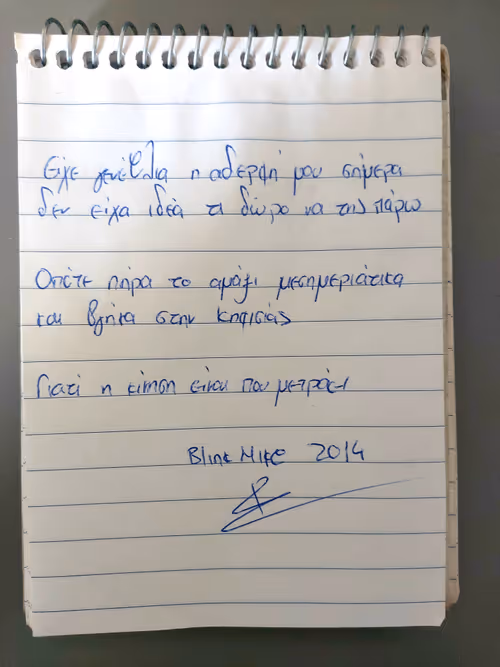 Είχε γενέθλια η αδερφή μου σήμερα
δεν είχα ιδέα τι δώρο να της πάρω
Οπότε πήρα το αμάξι μεσημεριάτικα
και βγήκα στην Κηφισιάς
Γιατί η κίνηση είναι που μετράει
Blink Mike 2014